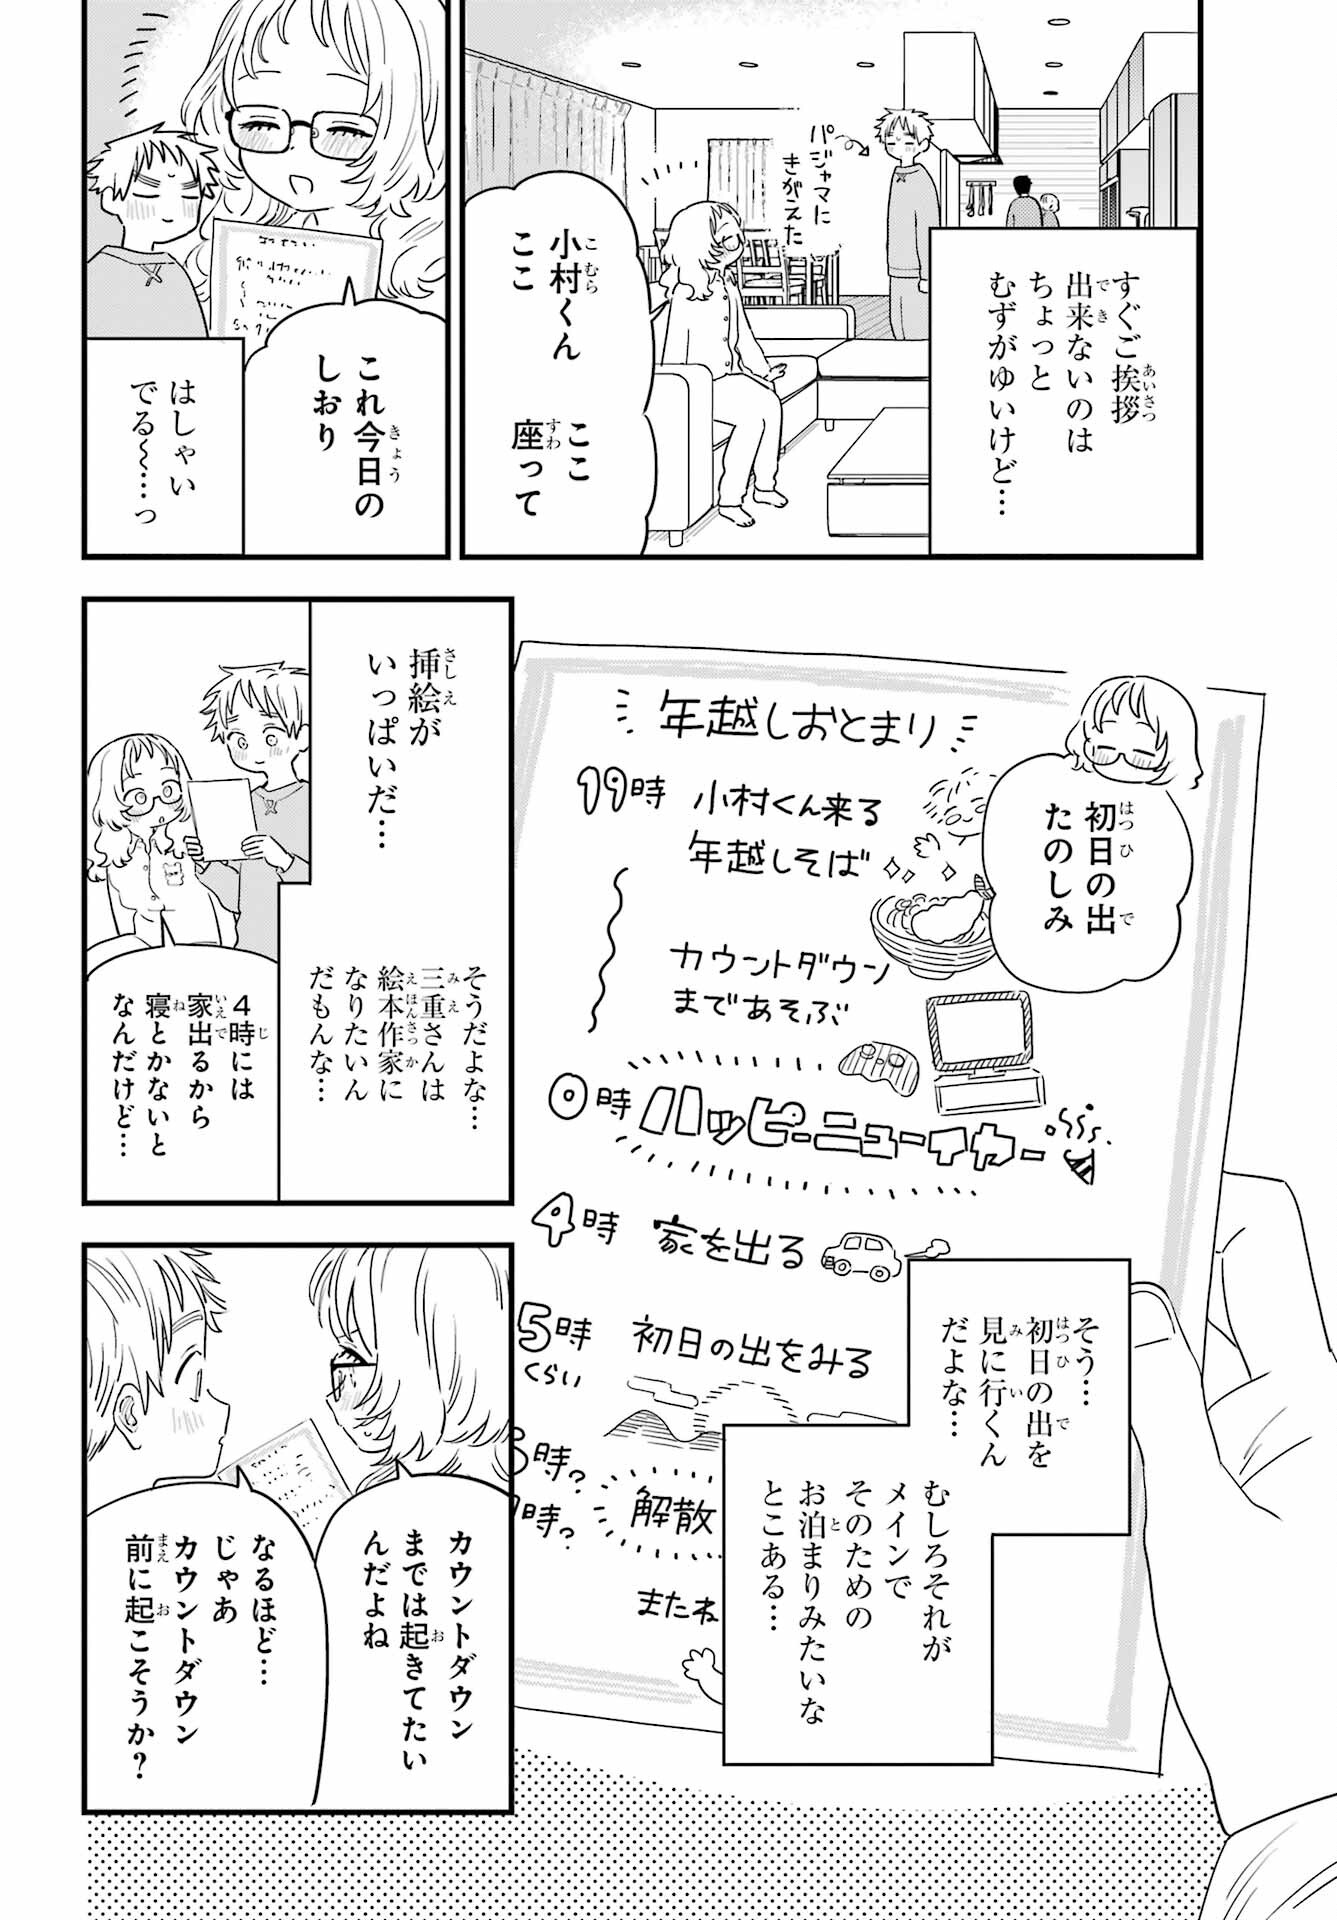 すぐご挨拶
出来ないのは
ちょっと
むずがゆいけど…
パジャマに
きがえた
小村くん
ここ
ここ
座って
これ今日の
しおり
はしゃい
でる〜…っ
年越しおとまり
19時 小村くん来る
年越しそば
カウントダウン
まであそぶ
0時 ハッピーニューイヤー
4時 家を出る
5時 初日の出をみる
くらい
時?
時?
解散
またね
初日の出
たのしみ
そう…
初日の出を
見に行くん
だよな…
むしろそれが
メインで
そのための
お泊まりみたいな
とこある…
挿絵が
いっぱいだ…
そうだよな…
三重さんは
絵本作家に
なりたいん
だもんな…
4時には
家出るから
寝とかないと
なんだけど…
カウントダウン
までは起きてたい
んだよね
なるほど…
じゃあ
カウントダウン
前に起こそうか?